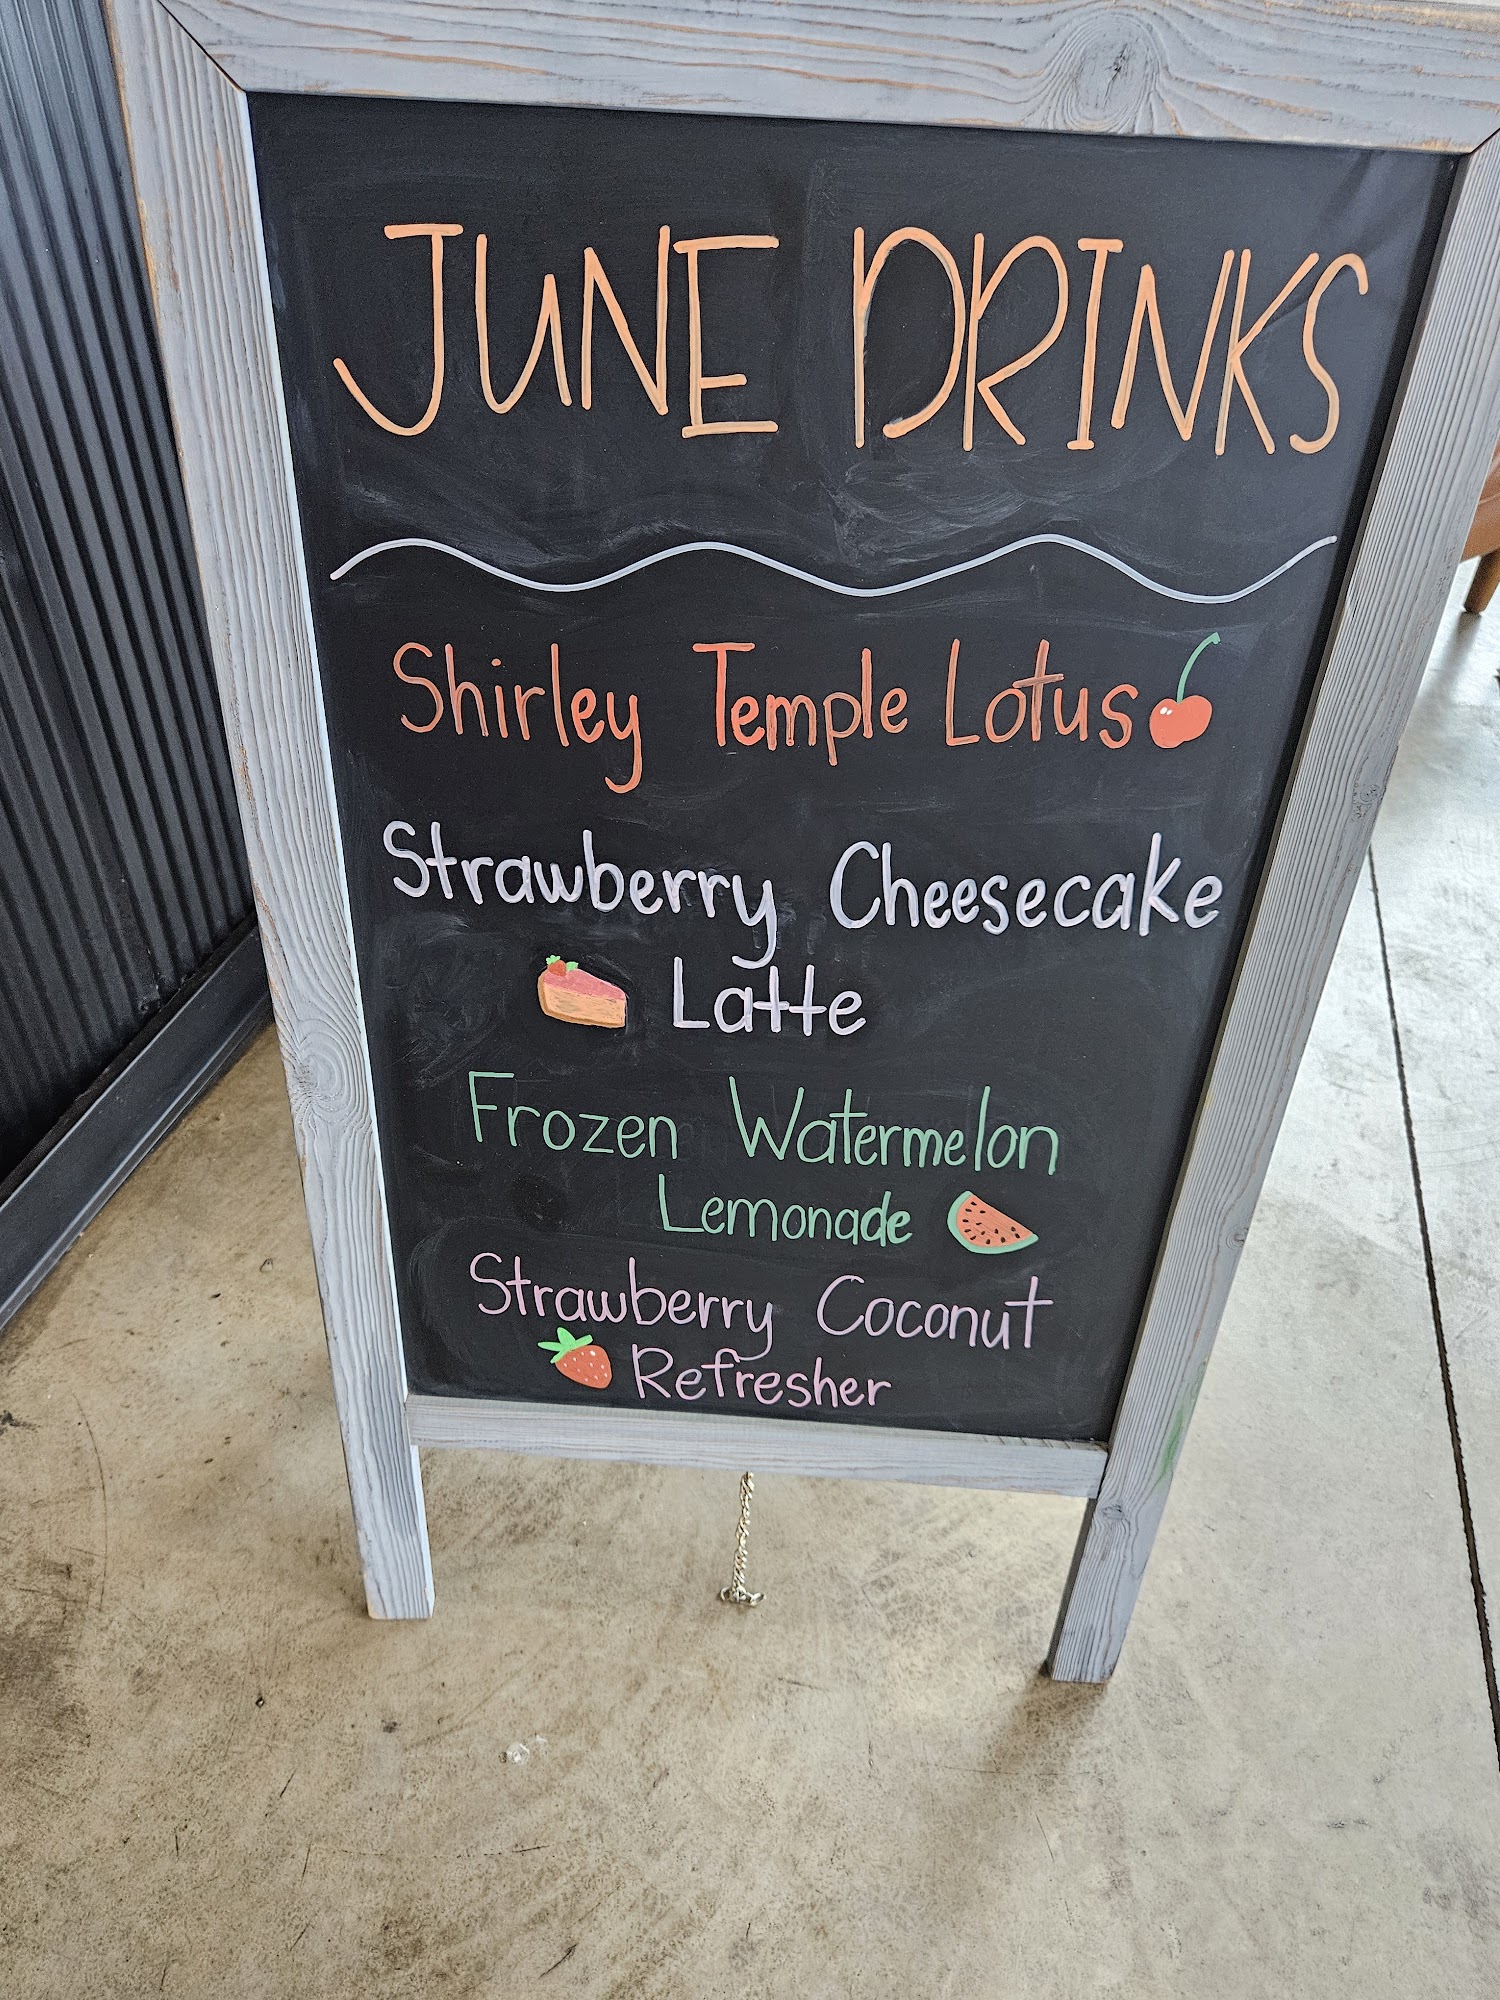 JUNE DRINKS
Shirley Temple Lotus
Strawberry Cheesecake
Latte
Frozen Watermelon
Lemonade
Strawberry Coconut
Refresher